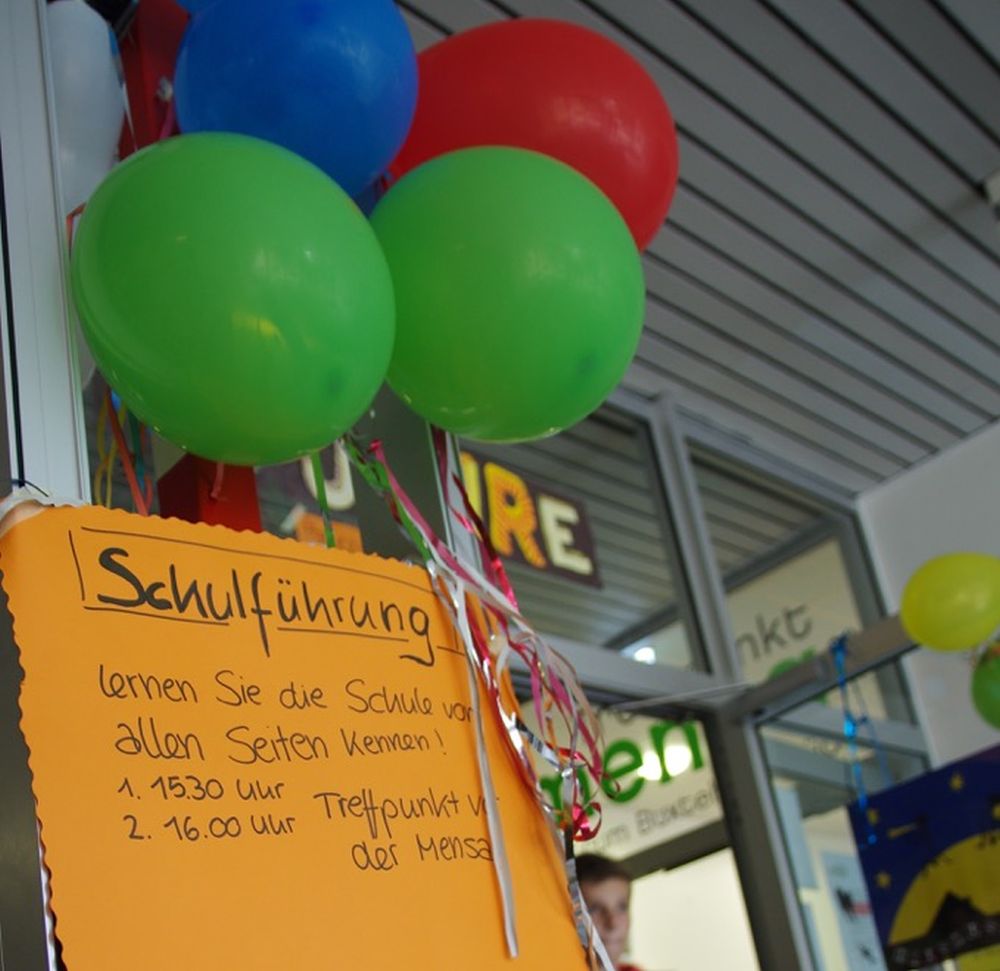 U
IRE
Schulführung
lernen Sie die Schule von
allen Seiten kennen!
1. 15.30 Uhr
2. 16.00 Uhr Treffpunkt
der Mensa
nkt
men
um